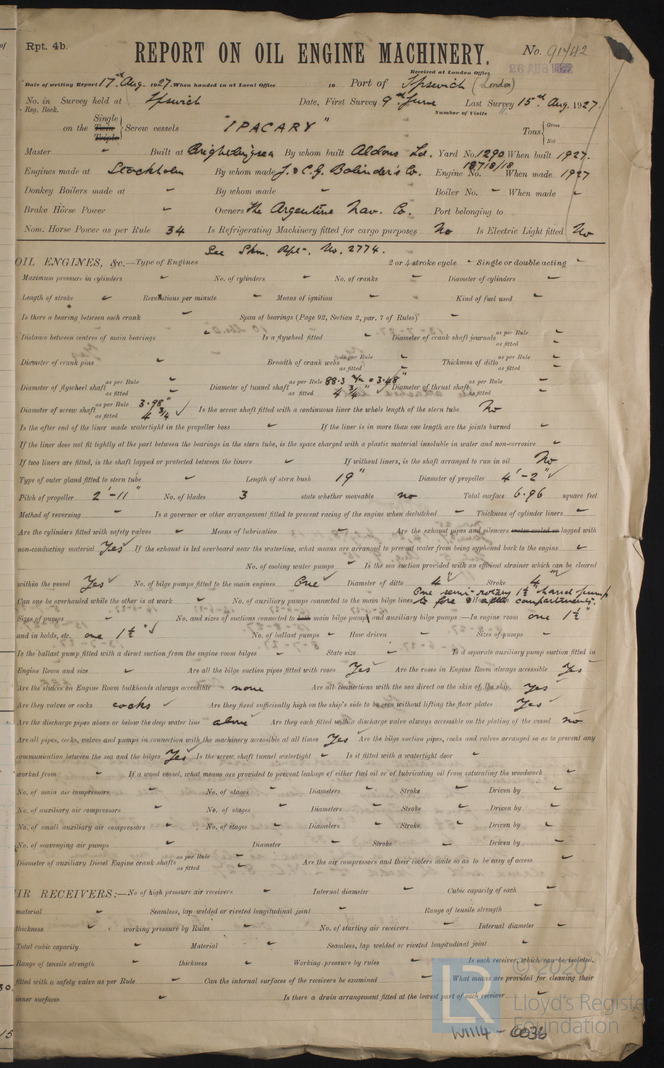 Rpt. 4b.
REPORT ON OIL ENGINE MACHINERY.
No. 91442
Received at London Office
Date of writing Report 17th Aug. 1927. When handed in at Local Office 19 Port of Ipswich (London)
No. in Survey held at Ipswich Date, First Survey 9th June Last Survey 15th Aug. 1927.
Reg. Book. Number of Visits
on the Single Twin Triple Screw vessels "IPACARY" Tons Gross Net
Master Built at Brightlingsea By whom built Aldous Ld. Yard No. 1290 When built 1927.
Engines made at Stockholm By whom made J. & C.G. Bolinder's Co. Engine No. 187/8/18 When made 1927
Donkey Boilers made at By whom made Boiler No. When made
Brake Horse Power Owners The Argentine Nav. Co. Port belonging to
Nom. Horse Power as per Rule 34 Is Refrigerating Machinery fitted for cargo purposes No Is Electric Light fitted No
See Skm. Rpt. No. 2774.
OIL ENGINES, &c.—Type of Engines 2 or 4 stroke cycle Single or double acting
Maximum pressure in cylinders No. of cylinders No. of cranks Diameter of cylinders
Length of stroke Revolutions per minute Means of ignition Kind of fuel used
Is there a bearing between each crank Span of bearings (Page 92, Section 2, par. 7 of Rules)
Distance between centres of main bearings Is a flywheel fitted Diameter of crank shaft journals as per Rule as fitted
Diameter of crank pins Breadth of crank webs as per Rule as fitted Thickness of ditto as per Rule as fitted
Diameter of flywheel shaft as per Rule as fitted Diameter of tunnel shaft as per Rule 88.3 m/m = 3.48" as fitted 4 3/4" Diameter of thrust shaft as per Rule as fitted
Diameter of screw shaft as per Rule 3.98" as fitted 4 3/4 Is the screw shaft fitted with a continuous liner the whole length of the stern tube No
Is the after end of the liner made watertight in the propeller boss If the liner is in more than one length are the joints burned
If the liner does not fit tightly at the part between the bearings in the stern tube, is the space charged with a plastic material insoluble in water and non-corrosive
If two liners are fitted, is the shaft lapped or protected between the liners If without liners, is the shaft arranged to run in oil No
Type of outer gland fitted to stern tube Length of stern bush 19" Diameter of propeller 4'-2"
Pitch of propeller 2'-11" No. of blades 3 state whether moveable no Total surface 6.96 square feet
Method of reversing Is a governor or other arrangement fitted to prevent racing of the engine when declutched Thickness of cylinder liners
Are the cylinders fitted with safety valves Means of lubrication Are the exhaust pipes and silencers water cooled or lagged with
non-conducting material Yes If the exhaust is led overboard near the waterline, what means are arranged to prevent water from being syphoned back to the engine
No. of cooling water pumps Is the sea suction provided with an efficient strainer which can be cleared
within the vessel Yes No. of bilge pumps fitted to the main engines One Diameter of ditto 4" Stroke 4"
Can one be overhauled while the other is at work No. of auxiliary pumps connected to the main bilge lines One semi-rotary 1½" hand pump to fore & aft compartments.
Sizes of pumps No. and sizes of suctions connected to both main bilge pumps and auxiliary bilge pumps—In engine room one 1½"
and in holds, etc. one 1½" No. of ballast pumps How driven Sizes of pumps
Is the ballast pump fitted with a direct suction from the engine room bilges State size Is a separate auxiliary pump suction fitted in
Engine Room and size Are all the bilge suction pipes fitted with roses Yes Are the roses in Engine Room always accessible Yes
Are the sluices on Engine Room bulkheads always accessible none Are all connections with the sea direct on the skin of the ship yes
Are they valves or cocks cocks Are they fixed sufficiently high on the ship's side to be seen without lifting the floor plates Yes
Are the discharge pipes above or below the deep water line above Are they each fitted with a discharge valve always accessible on the plating of the vessel no
Are all pipes, cocks, valves and pumps in connection with the machinery accessible at all times Yes Are the bilge suction pipes, cocks and valves arranged so as to prevent any
communication between the sea and the bilges Yes Is the screw shaft tunnel watertight Is it fitted with a watertight door
worked from If a wood vessel, what means are provided to prevent leakage of either fuel oil or of lubricating oil from saturating the woodwork
No. of main air compressors No. of stages Diameters Stroke Driven by
No. of auxiliary air compressors No. of stages Diameters Stroke Driven by
No. of small auxiliary air compressors No. of stages Diameters Stroke Driven by
No. of scavenging air pumps Diameter Stroke Driven by
Diameter of auxiliary Diesel Engine crank shafts as per Rule as fitted Are the air compressors and their coolers made so as to be easy of access
AIR RECEIVERS:—No of high pressure air receivers Internal diameter Cubic capacity of each
material Seamless, lap welded or riveted longitudinal joint Range of tensile strength
thickness working pressure by Rules No. of starting air receivers Internal diameter
Total cubic capacity Material Seamless, lap welded or riveted longitudinal joint
Range of tensile strength thickness Working pressure by rules Is each receiver, which can be isolated,
fitted with a safety valve as per Rule Can the internal surfaces of the receivers be examined What means are provided for cleaning their
inner surfaces Is there a drain arrangement fitted at the lowest part of each receiver
© 2020
Lloyd's Register
Foundation
W1114-0036